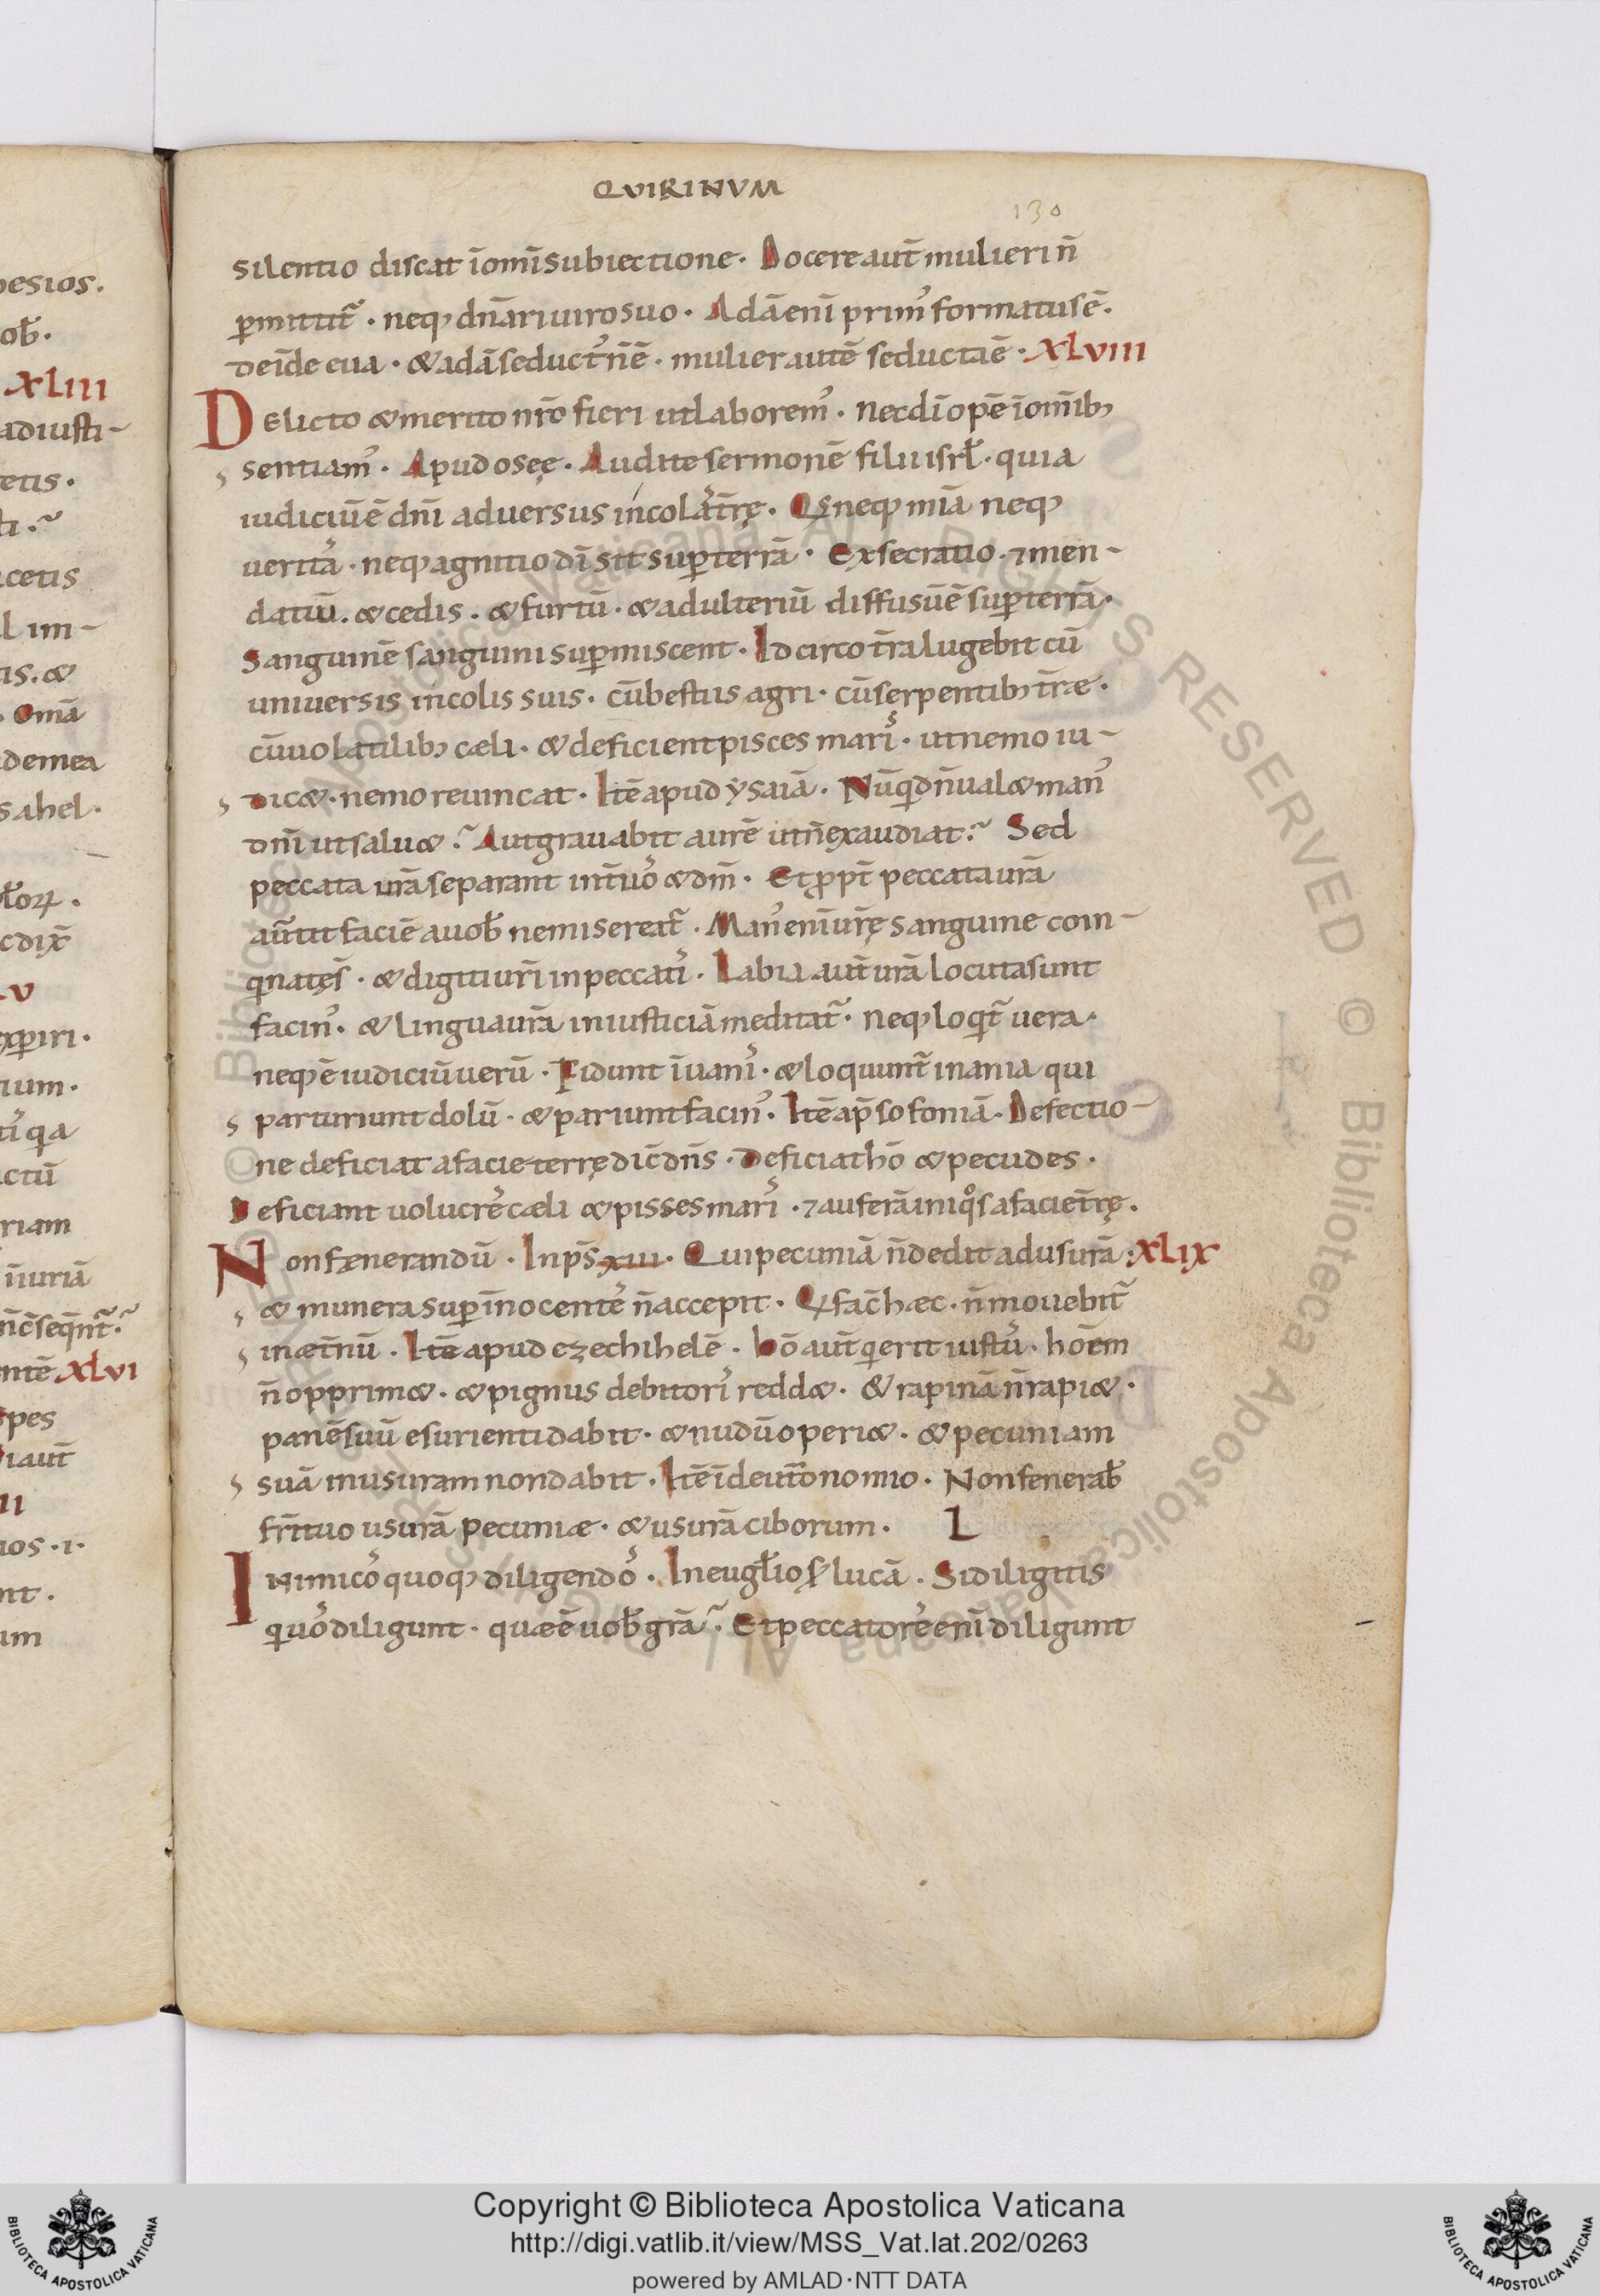 QVIRINVM
130
silentio discat īomī subiectione. Docere aut̄ mulieri n̄
ꝑmittit᷑. neqꝫ dn̄ari uiro suo. Adā enī prim᾽ formatus ē.
deīde eua. & adā seduct᾽ n̄ ē. mulier autē seducta ē. XLVIII
Delicto & merito nr̄o fieri ut laborem᾽. nec dī opē ī om̄ibꝫ
sentiam᾽. Apud oseę. Audite sermonē filii isrł. quia
iudiciū ē dn̄i aduersus incolas tr̄ę. Qs neqꝫ mīa neqꝫ
ueritas. neqꝫ agnitio dī sit suꝑ terrā. Exsecratio. ⁊ men-
datiū. & cedis. & furtū. & adulteriū diffusū ē suꝑ terrā.
Sanguinē sanguini suꝑmiscent. Idcirco tr̄a lugebit cū
uniuersis incolis suis. cū bestiis agri. cū serpentibꝫ tr̄æ.
cū uolatilibꝫ cæli. & deficient pisces maris. ut nemo iu-
dic&. nemo reuincat. Itē apud ysaiā. Nūqd n̄ ual& man᾽
dn̄i ut salu&? Aut grauabit aurē ut n̄ exaudiat? Sed
peccata ur̄a separant int̄ uos & dm̄. Et ꝓpt̄ peccata ur̄a
au̅tit faciē a uob̄ ne misereat᷑. Man᾽ enī ur̄ę sanguine coin-
qinatę s̄. & digiti ur̄i in peccatis. Labia aut̄ ur̄a locuta sunt
facin᾽. & lingua ur̄a iniusticiā meditat᷑. neqꝫ loqit᷑ uera.
neqꝫ ē iudiciū uerū. Fidunt ī uanis. & loquunt᷑ inania qui
parturiunt dolū. & pariunt facin᾽. Itē ap̄ sofoniā. Defectio-
ne deficiat a facie terrę dic̄ dn̄s. Deficiat hō & pecudes.
Deficiant uolucres cæli & pisses maris. ⁊ auferā iniqos a facie tr̄ę.
Non fænerandū. In ps̄ xiii. Qui pecuniā n̄ dedit ad usurā: XLIX
& munera suꝑ īnocentes n̄ accepit. Q facīt hæc. n̄ mouebit᷑
in æt̄nū. Itē apud ezechihelē. Hō aut̄ qi erit iustus. hōem
n̄ opprim&. & pignus debitoris redd&. & rapinā n̄ rapi&.
panē suū esurienti dabit. & nudū operi&. & pecuniam
suā in usuram non dabit. Itē ī deutr̄onomio. Non fenerab̄
fr̄i tuo usurā pecuniæ. & usurā ciborum. L
Inimicos quoqꝫ diligendos. In eugłio s̄ lucā. Si diligitis
qi uos diligunt. quæ ē uob̄ gr̄a? Et peccatores enī diligunt
XLIII
XLVI
Copyright © Biblioteca Apostolica Vaticana
http://digi.vatlib.it/view/MSS_Vat.lat.202/0263
powered by AMLAD·NTT DATA
BIBLIOTECA APOSTOLICA VATICANA
BIBLIOTECA APOSTOLICA VATICANA